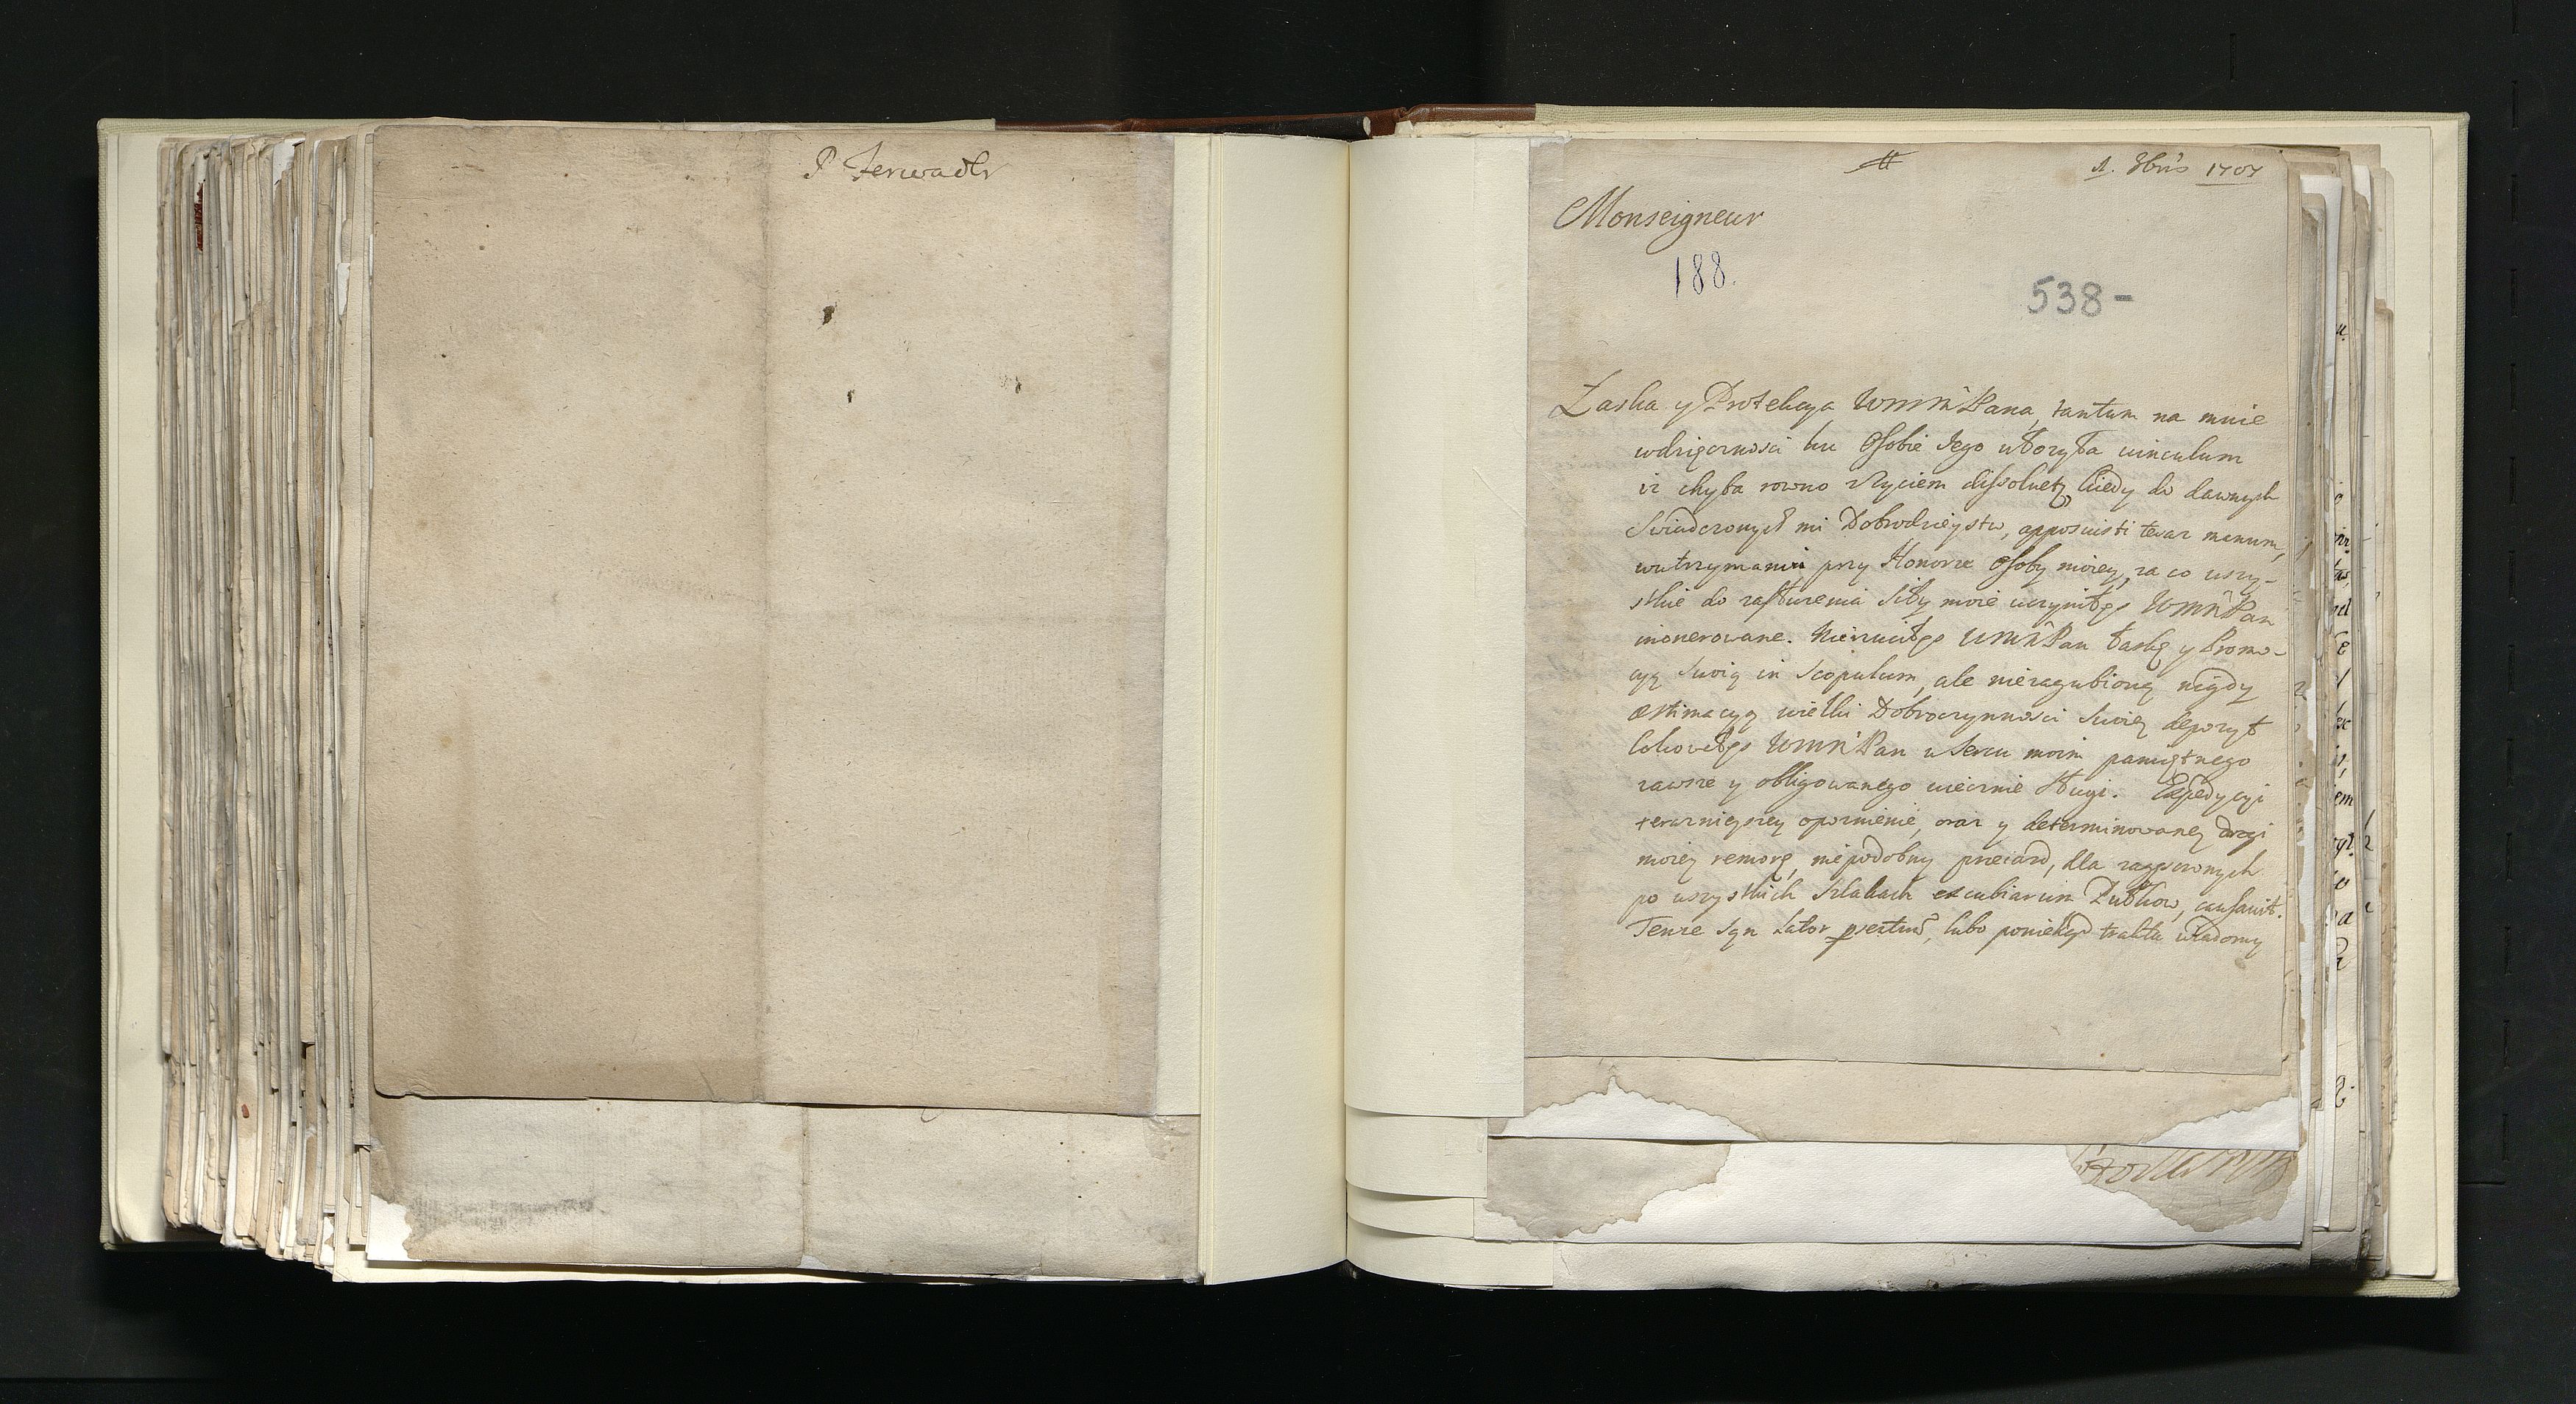 P Ferwadlr
tt
1. 8bris 1707
Monseigneur
188.
538-
Łaska y Protekcya WMM Pana, tantum na mnie
wdzięcznosci ku Osobie Jego włożyła vinculum
iż chyba rowno z życiem dissolvetur, kiedy do dawnych
Swiadczonych mi Dobrodzieystw, apposuisti teraz manum,
w utrzymaniu przy Honorze Osoby moiey, za co wszy-
stkie do zasłużenia siły moie uczyniłeś WMM Pan
inonerowane. Nierzuciłeś WMM Pan łaskę y Promo-
cyą Swoią in Scopulum, ale niezagubioną nigdy
æstimacyą wielki Dobroczynnosci Swoiey depozyt
lokowałeś WMM Pan w Sercu moim pamiętnego
zawsze y obligowanego wiecznie Sługi. Expedycyi
teraznieyszey opoznienie, oraz y determinowaney drogi
moiey remorę, niepodobny przeiazd, dla
po wszystkich Szlakach excubiarum Pułkow, causavit.
Tenze Jgn Lator præsentium, lubo poniekąd traktu wiadomy